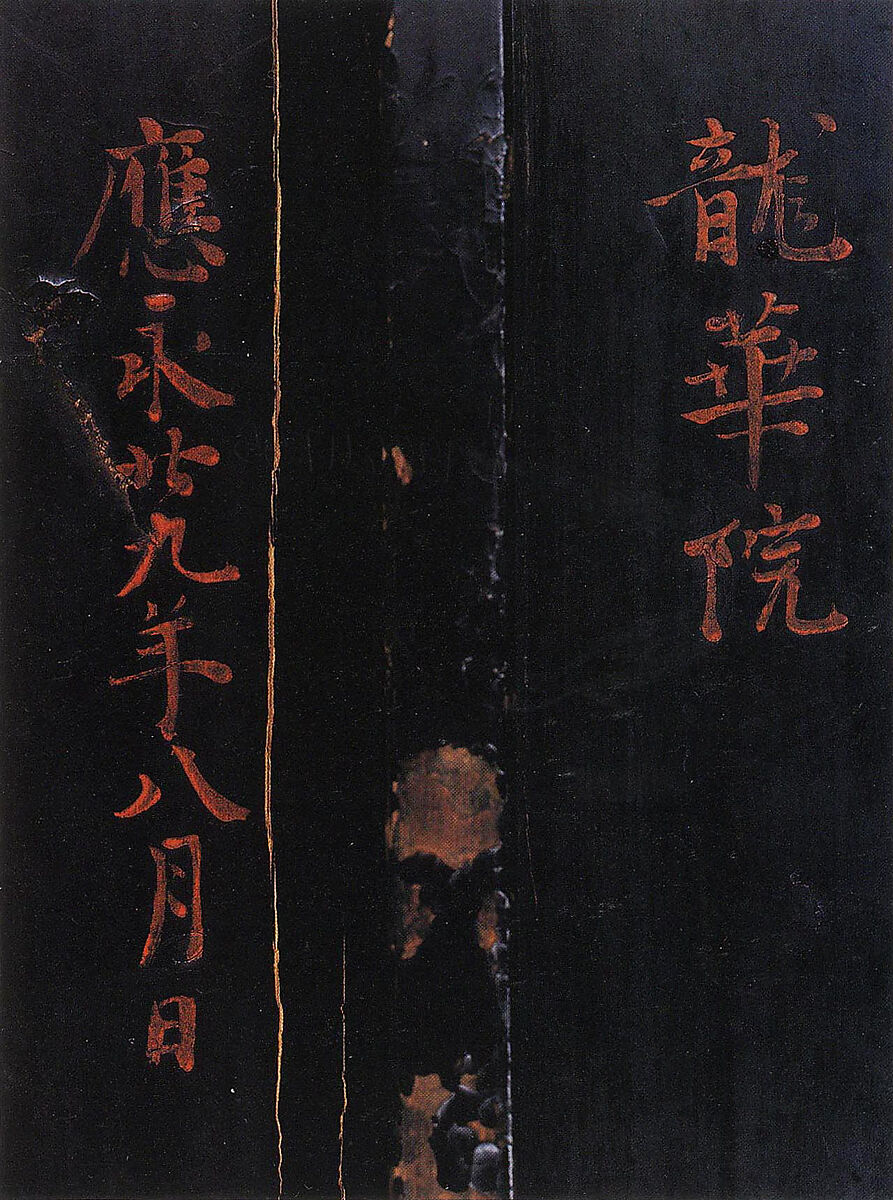 龍華院
應永廿九年八月日